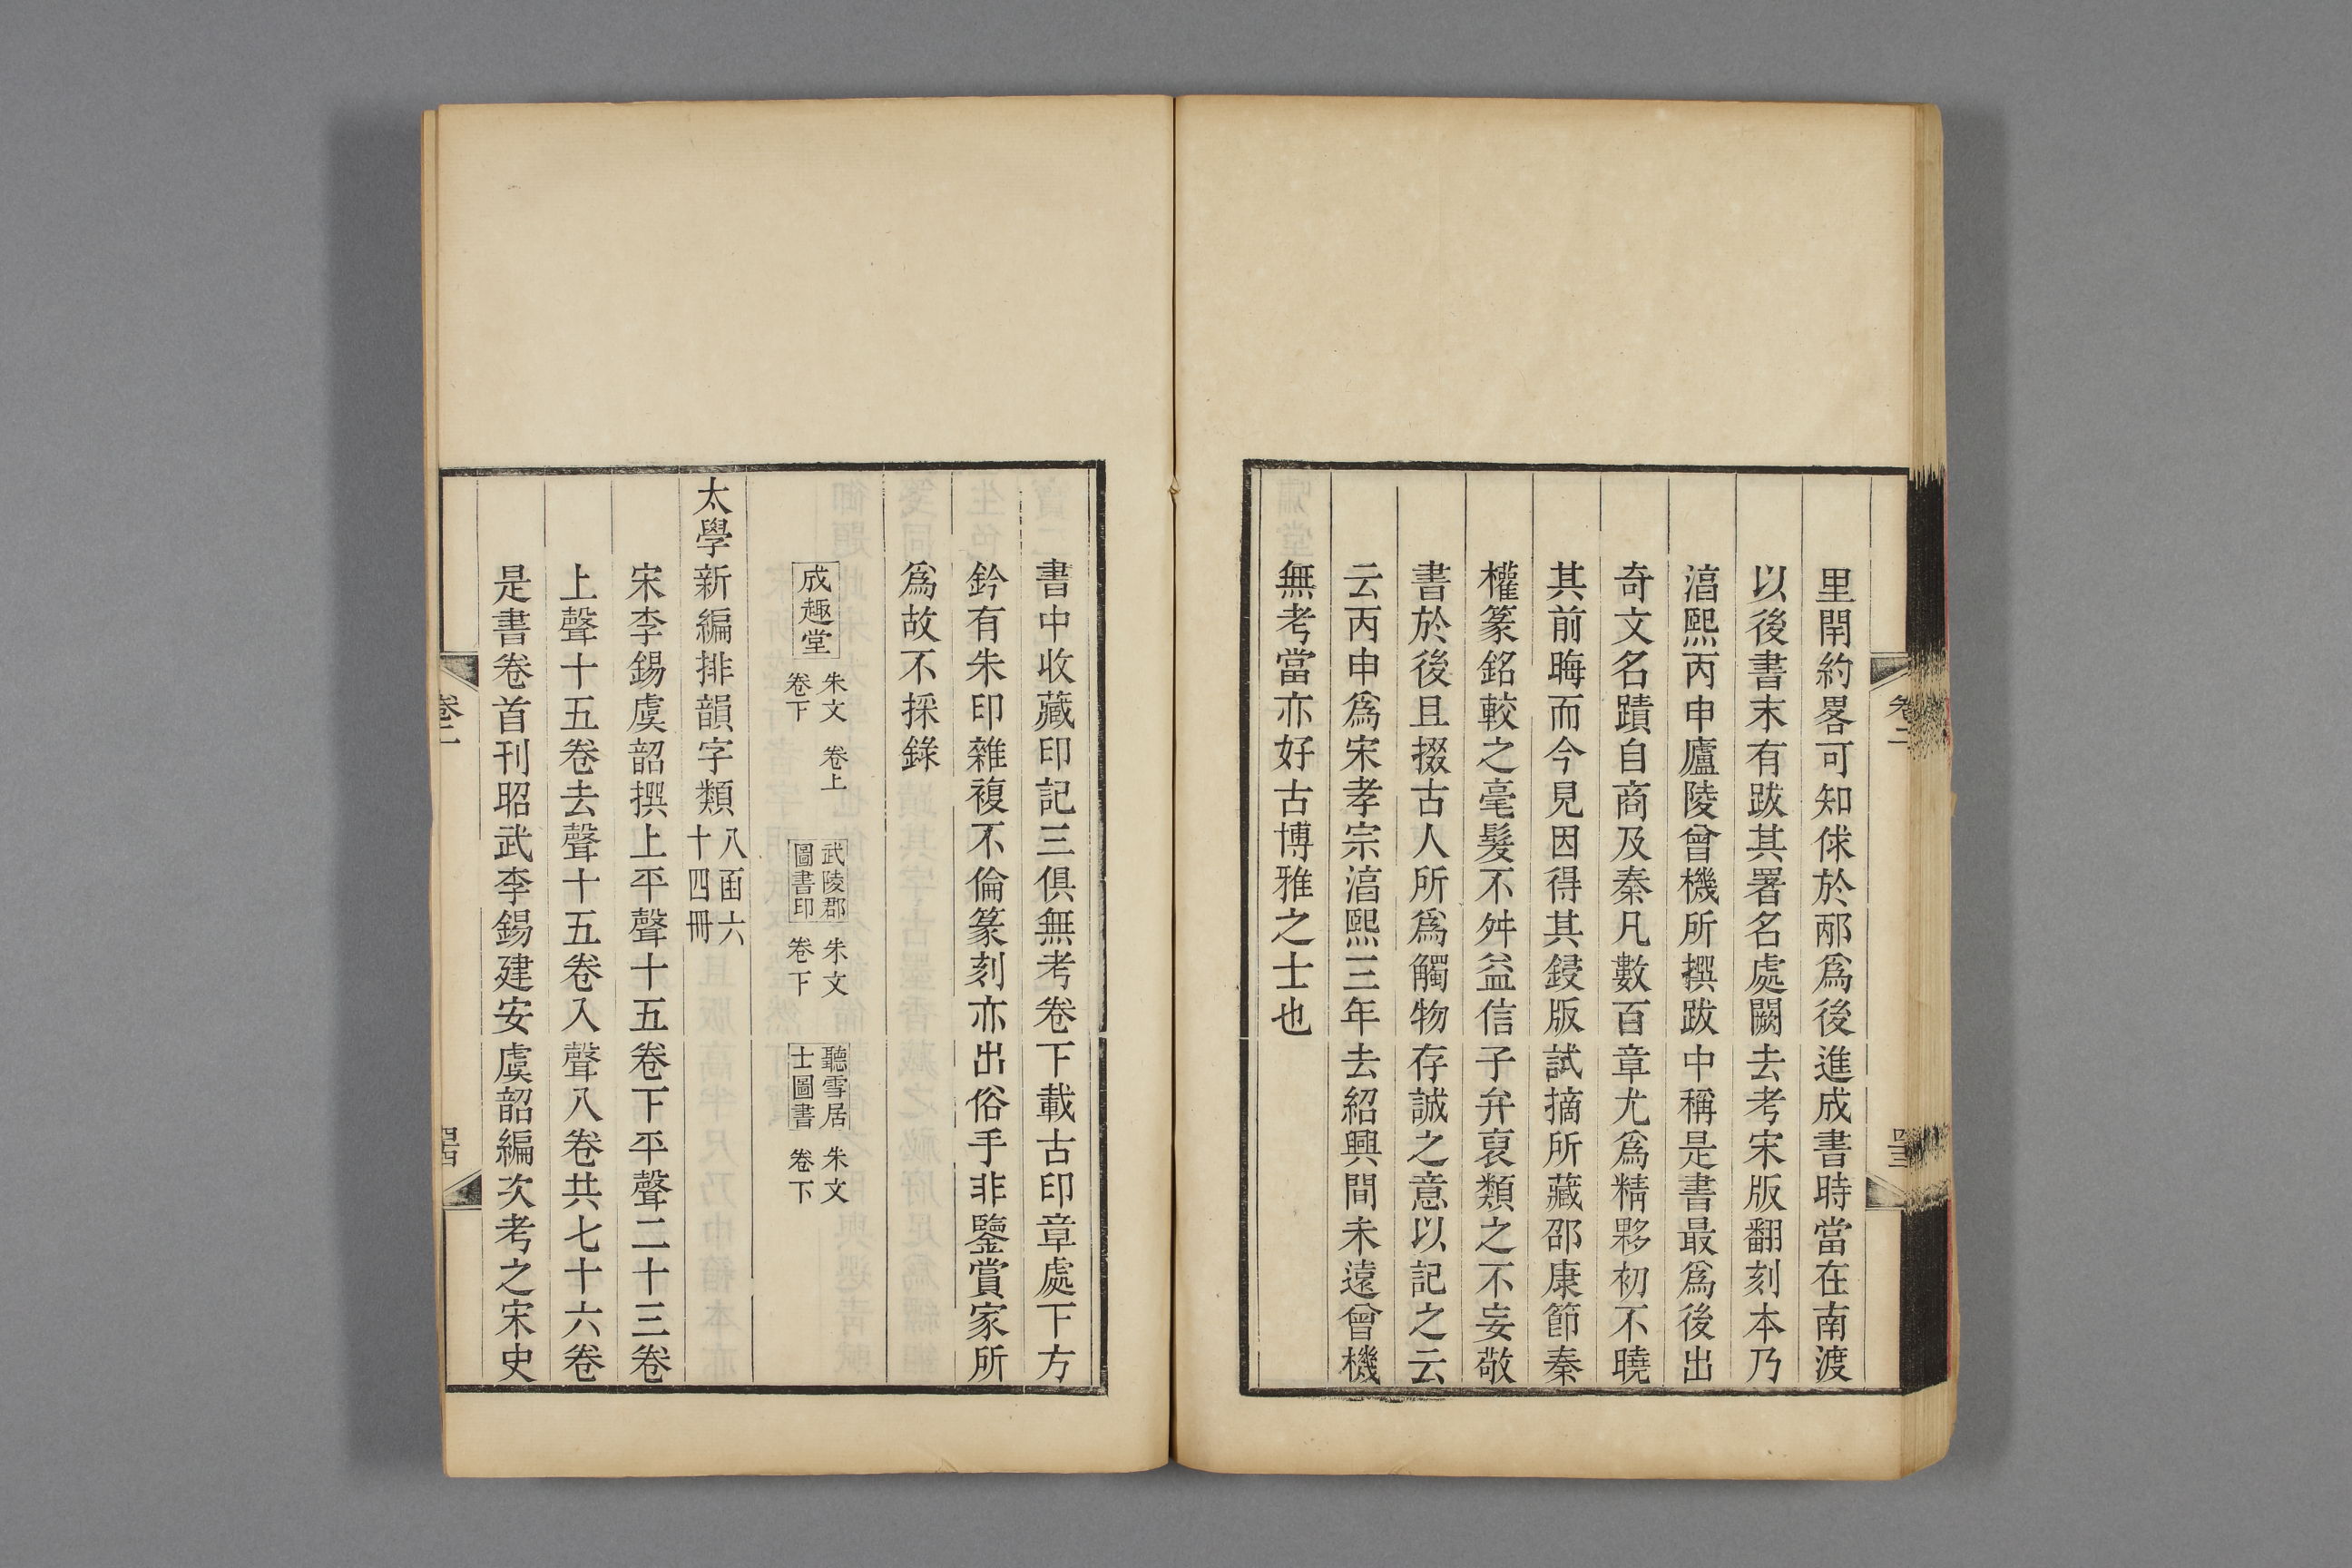 里閈約畧可知俅於邴爲後進成書時當在南渡
以後書末有跋其署名處闕去考宋版翻刻本乃
湻熙丙申廬陵曾機所撰跋中稱是書最爲後出
奇文名蹟自商及秦凡數百章尤爲精夥初不曉
其前晦而今見因得其鋟版試摘所藏邵康節秦
權篆銘較之毫髮不舛益信子弁裒類之不妄敬
書於後且掇古人所爲觸物存誠之意以記之云
云丙申爲宋孝宗湻熙三年去紹興間未遠曾機
無考當亦好古博雅之士也
卷二
書中收藏印記三俱無考卷下載古印章處下方
鈐有朱印雜複不倫篆刻亦出俗手非鑒賞家所
爲故不採錄
成趣堂 朱文 卷上 卷下 武陵郡圖書印 朱文 卷下 聽雪居士圖書 朱文 卷下
太學新編排韻字類 八函六十四冊
宋李錫虞韶撰上平聲十五卷下平聲二十三卷
上聲十五卷去聲十五卷入聲八卷共七十六卷
是書卷首刊昭武李錫建安虞韶編次考之宋史
卷二